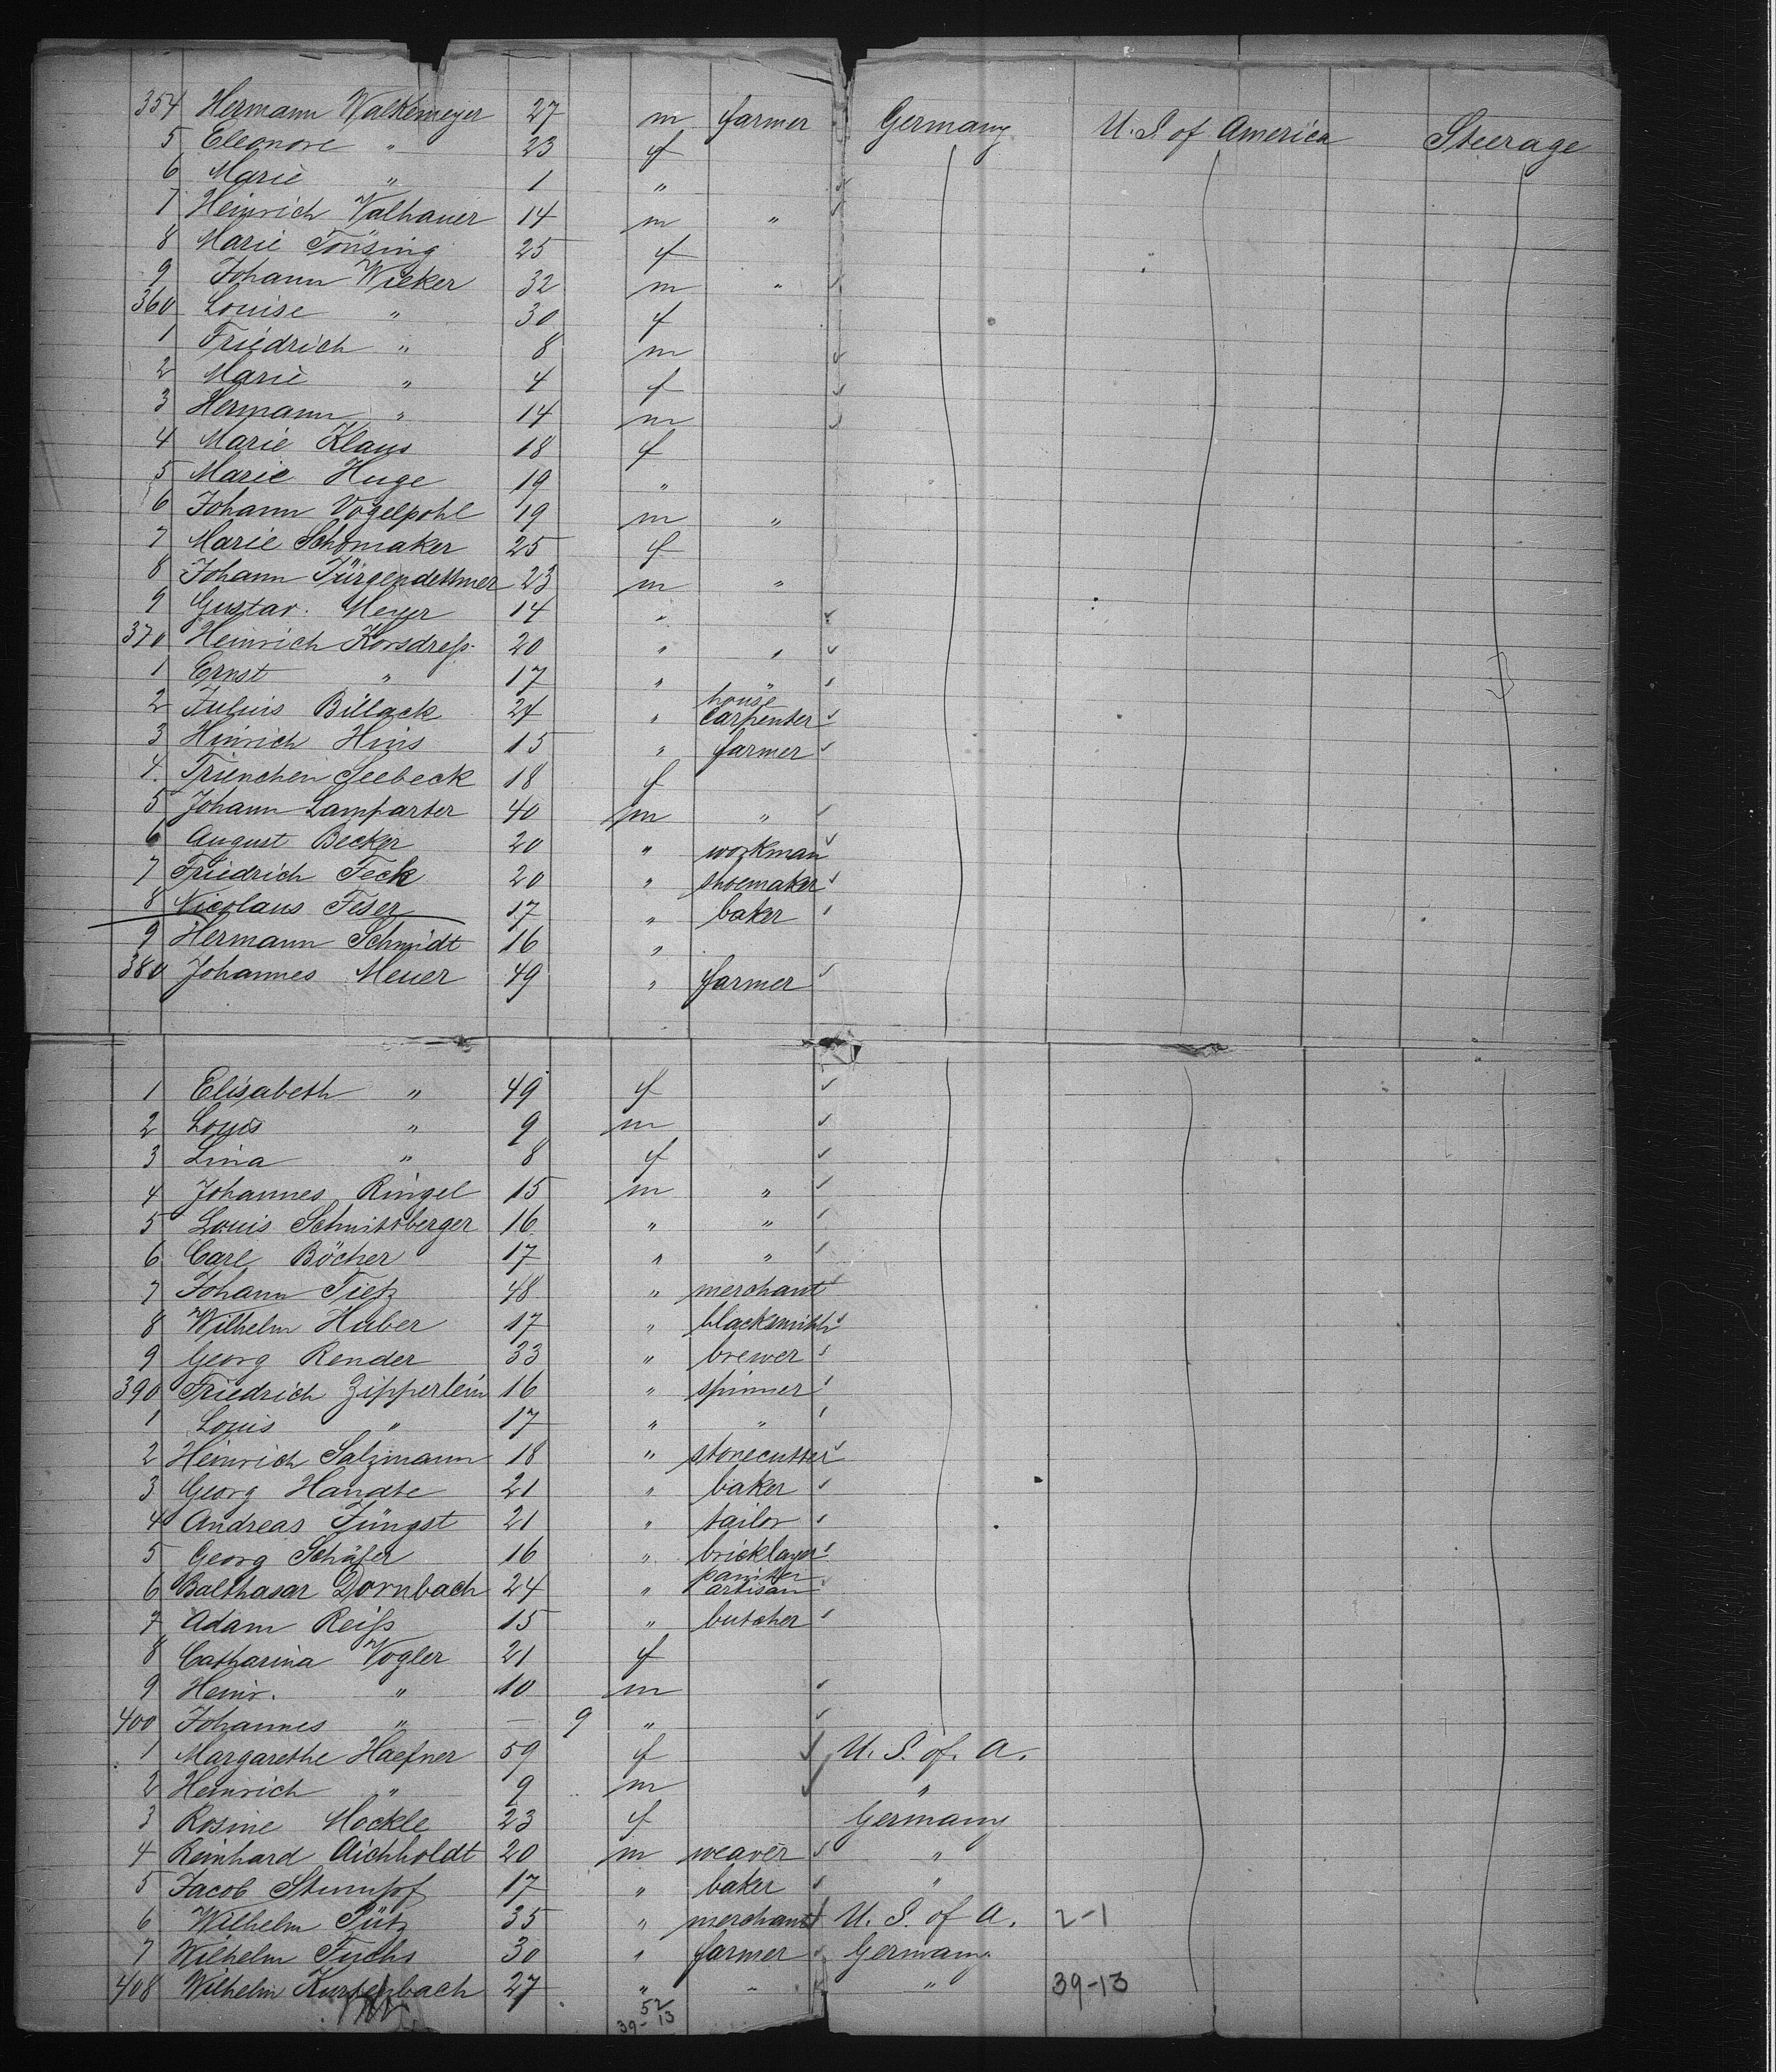 354 Hermann Walkemeyer 27 m farmer Germany U.S. of America Steerage
5 Eleonore " 23 f
6 Marie " 1 "
7 Heinrich Valhauer 14 m "
8 Marie Tönsing 25 f
9 Johann Wieker 32 m "
360 Louise " 30 f
1 Friedrich " 8 m
2 Marie " 4 f
3 Hermann " 14 m
4 Marie Klaus 18 f
5 Marie Huge 19 "
6 Johann Vogelpohl 19 m "
7 Marie Schomaker 25 f
8 Johann Jürgendettmer 23 m "
9 Gustav. Meyer 14 "
370 Heinrich Korsdreß. 20 " "
1 Ernst " 17 " "
2 Julius Billack 24 " house carpenter
3 Hinrich Hins 15 " farmer
4. Trienchen Seebeck 18 f
5 Johann Lamparter 40 m "
6 August Becker 20 " workman
7 Friedrich Feck 20 " shoemaker
8 Nicolaus Feser 17 " baker
9 Hermann Schmidt 16 "
380 Johannes Meuer 49 " farmer
1 Elisabeth " 49 f
2 Louis " 9 m
3 Lina " 8 f
4 Johannes Ringel 15 m "
5 Louis Schnittberger 16 " "
6 Carl Böcher 17 " "
7 Johann Tietz 48 " merchant
8 Wilhelm Huber 17 " blacksmith
9 Georg Render 33 " brewer
390 Friedrich Zipperlein 16 " spinner
1 Louis " 17 " "
2 Heinrich Salzmann 18 " stonecutter
3 Georg Handte 21 " baker
4 Andreas Jüngst 21 " tailor
5 Georg Schäfer 16 " bricklayer
6 Balthasar Dornbach 24 " artisan
7 Adam Reiß 15 " butcher
8 Catharina Vogler 21 f
9 Heinr. " 10 m
400 Johannes " — 9 "
1 Margarethe Haefner 59 f U. S. of. A.
2 Heinrich " 9 m "
3 Rosine Mockle 23 f Germany
4 Reinhard Aichholdt 20 m weaver "
5 Jacob Stumpf 17 " baker "
6 Wilhelm Pütz 35 " merchant U. S. of A. 2-1
7 Wilhelm Fuchs 30 " farmer Germany
408 Wilhelm Kurtenbach 27 " " " 39-13
52
39-13